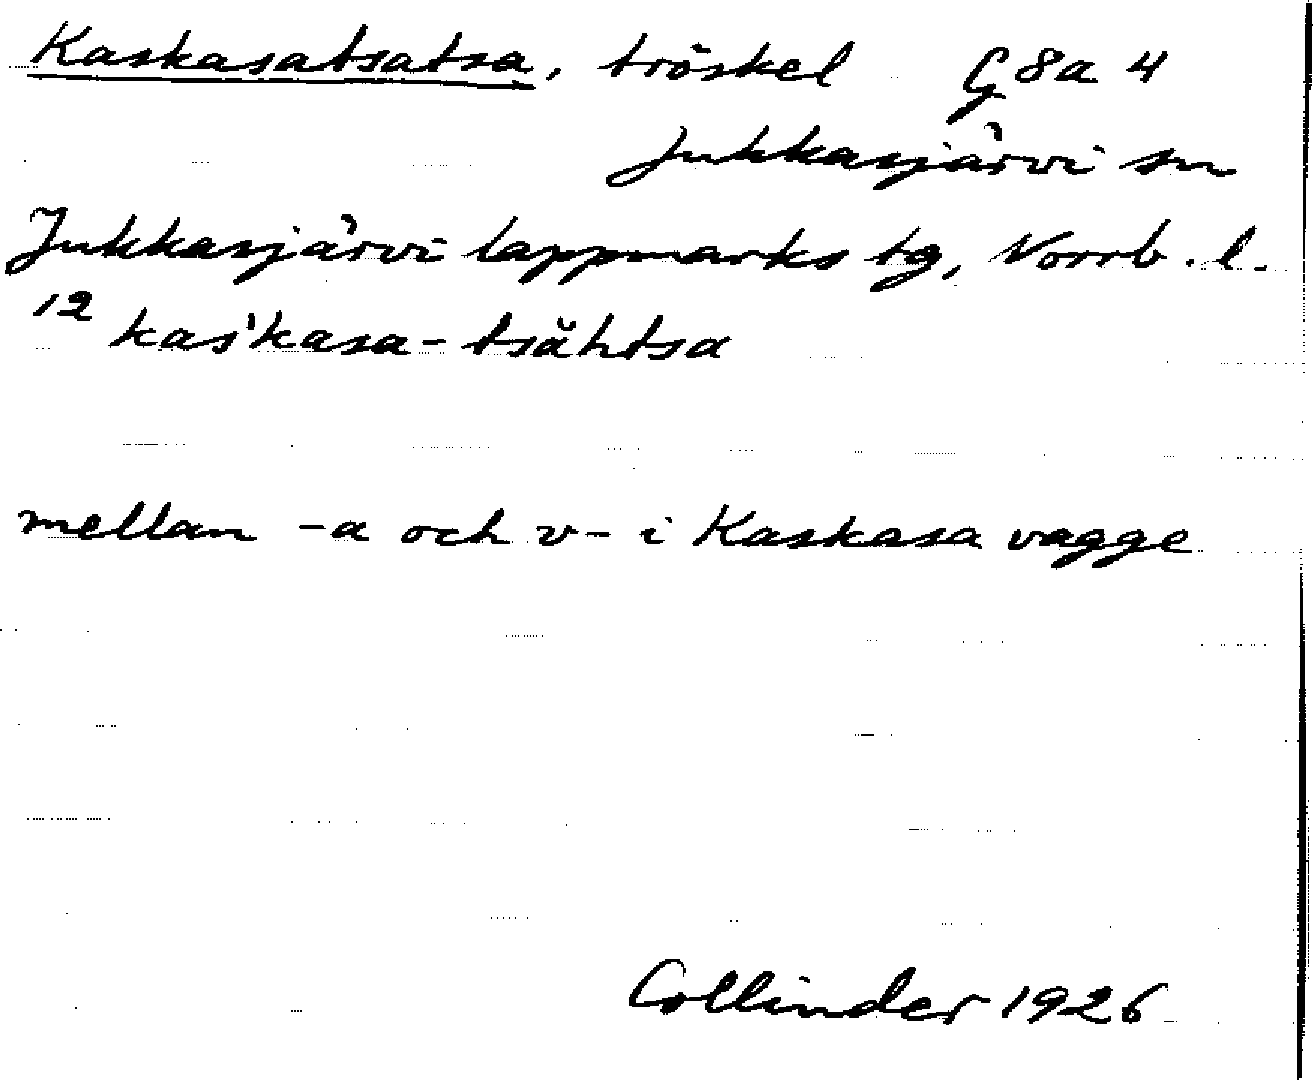 Kaskasatsatsa, tröskel G 8a 4
Jukkasjärvi sn
Jukkasjärvi lappmarks tg, Norrb. l.
12 kas'kasa-tsăhtsa
mellan -a och v- i Kaskasa vagge
Collinder 1926